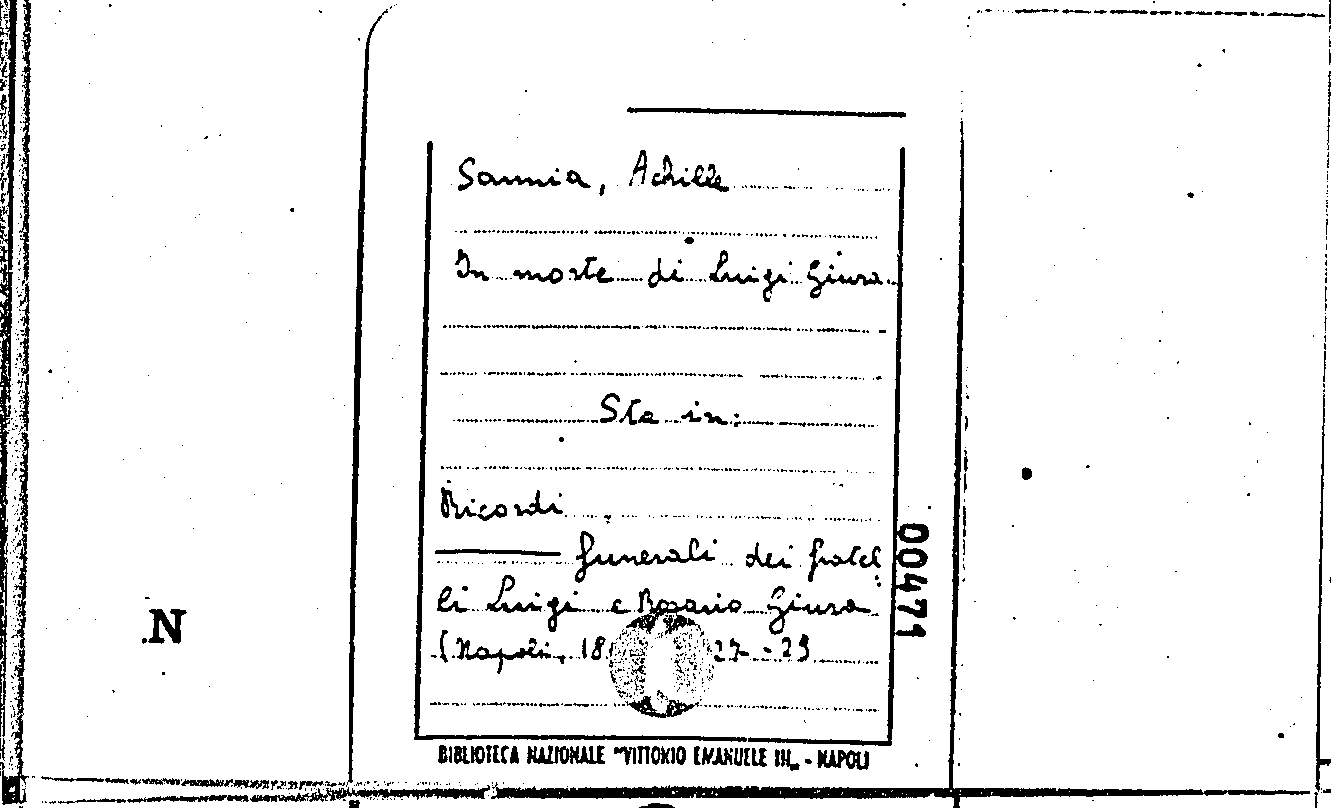 Sannia, Achille
In morte di Luigi Giura.
Sta in:
Ricordi
funerali dei fratel
li Luigi e Rosario Giura
(Napoli, 18 27-29
00471
N
BIBLIOTECA NAZIONALE "VITTORIO EMANUELE III„ - NAPOLI